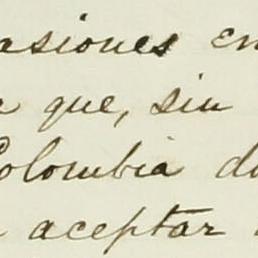 asiones en
que, sin
Colombia
aceptar